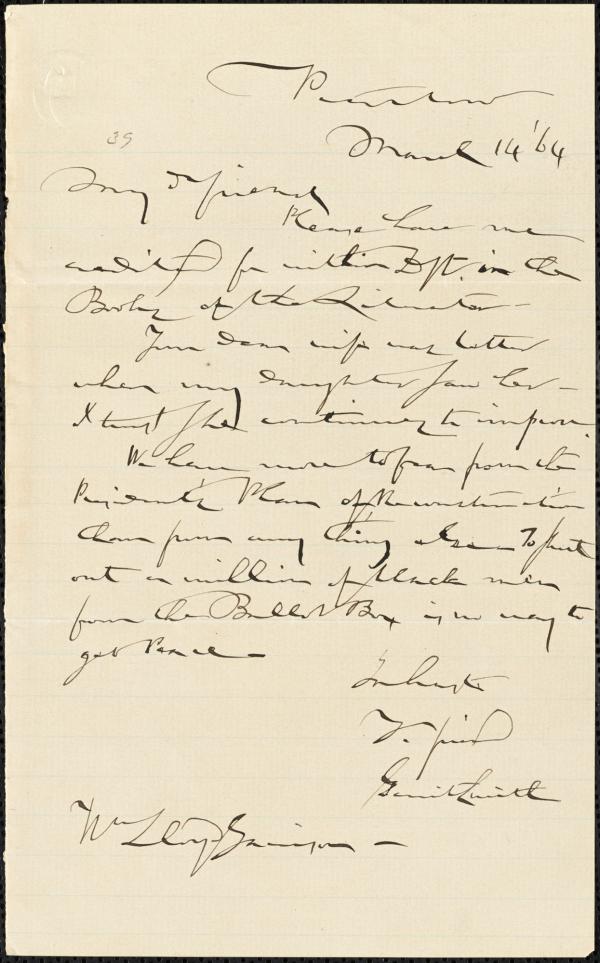 Peterboro
March 14 '64
39
My d friend
Please have me
credited for within Dft. in the
Books of the Liberator -
Your dear wife was better
when my daughter saw her -
I trust she continues to improve.
We have more to fear from the
President's Plan of Reconstruction
than from any thing else. To shut
out a million of black men
from the Ballot Box is no way to
get Peace -
In haste
Yr friend
Gerrit Smith
Wm Lloyd Garrison -